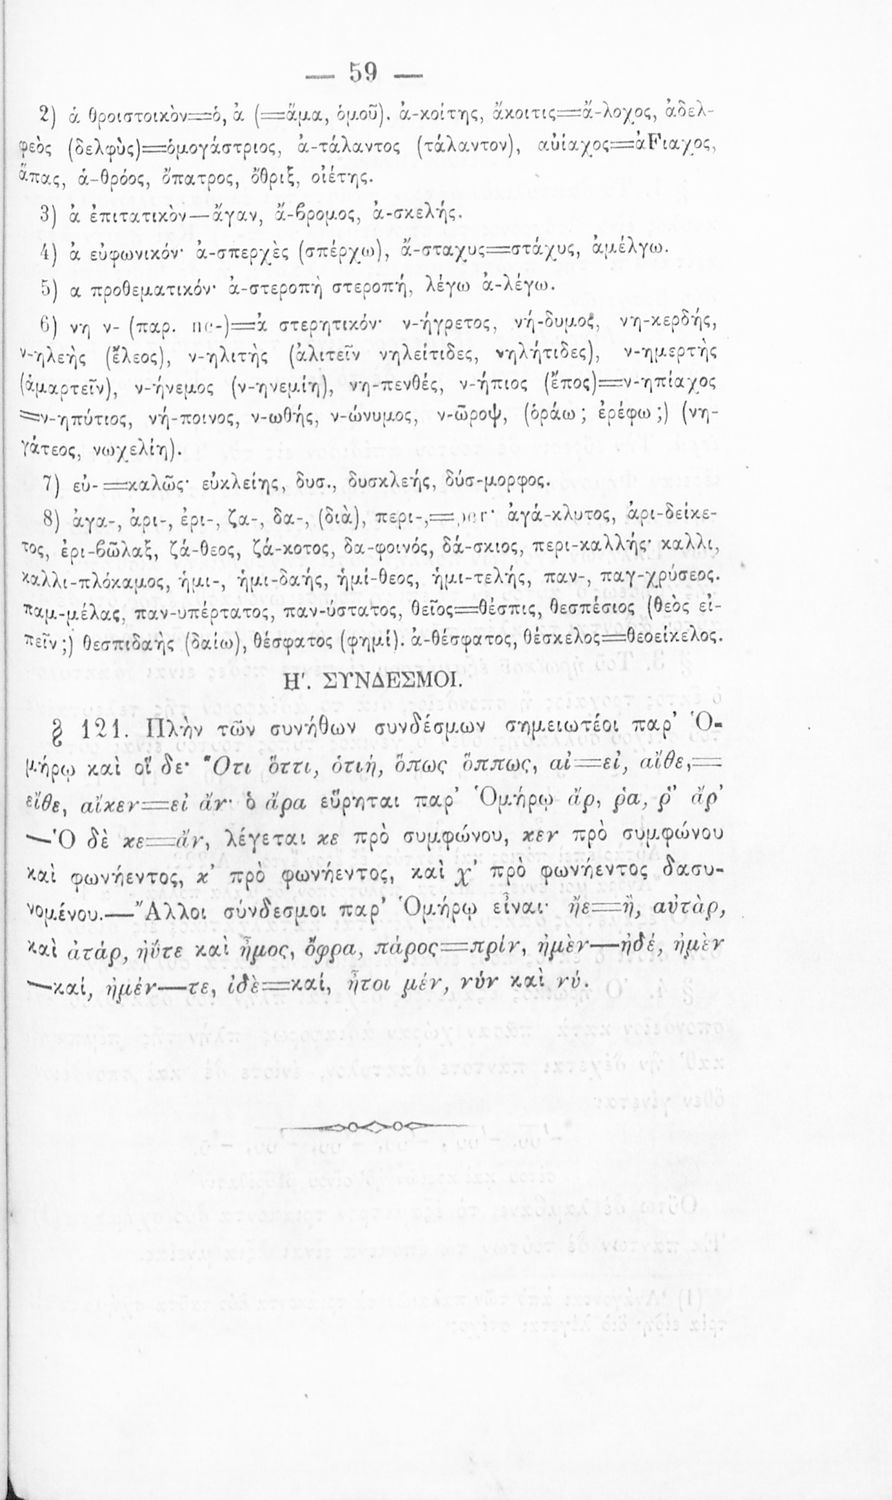 — 59 —
2) ἁ θροιστοικὸν=ὁ, ἀ (=ἅμα, ὁμοῦ). ἀ-κοίτης, ἄκοιτις=ἄ-λοχος, ἀδελ-
φεὸς (δελφὺς)=ὁμογάστριος, ἀ-τάλαντος (τάλαντον), αὐίαχος=ἀFιαχος,
ἅπας, ἁ-θρόος, ὄπατρος, ὄθριξ, οἰέτης.
3) ἀ ἐπιτατικὸν—ἄγαν, ἄ-βρομος, ἀ-σκελής.
4) ἀ εὐφωνικόν· ἀ-σπερχὲς (σπέρχω), ἄ-σταχυς=στάχυς, ἀμέλγω.
5) α προθεματικόν· ἀ-στεροπὴ στεροπή, λέγω ἀ-λέγω.
6) νη ν- (παρ. ne-)=ἀ στερητικόν· ν-ήγρετος, νή-δυμος, νη-κερδής,
ν-ηλεὴς (ἔλεος), ν-ηλιτὴς (ἀλιτεῖν νηλείτιδες, νηλήτιδες), ν-ημερτὴς
(ἁμαρτεῖν), ν-ήνεμος (ν-ηνεμίη), νη-πενθές, ν-ήπιος (ἔπος)=ν-ηπίαχος
=ν-ηπύτιος, νή-ποινος, ν-ωθής, ν-ώνυμος, ν-ῶροψ, (ὁράω; ἐρέφω;) (νη-
γάτεος, νωχελίη).
7) εὐ-=καλῶς· εὐκλείης, δυσ., δυσκλεής, δύσ-μορφος.
8) ἀγα-, ἀρι-, ἐρι-, ζα-, δα-, (διὰ), περι-,=per· ἀγά-κλυτος, ἀρι-δείκε-
τος, ἐρι-βῶλαξ, ζά-θεος, ζά-κοτος, δα-φοινός, δά-σκιος, περι-καλλής· καλλι,
καλλι-πλόκαμος, ἡμι-, ἡμι-δαής, ἡμί-θεος, ἡμι-τελής, παν-, παγ-χρύσεος.
παμ-μέλας, παν-υπέρτατος, παν-ύστατος, θεῖος=θέσπις, θεσπέσιος (θεὸς εἰ-
πεῖν;) θεσπιδαὴς (δαίω), θέσφατος (φημί). ἀ-θέσφατος, θέσκελος=θεοείκελος.
Η′. ΣΥΝΔΕΣΜΟΙ.
§ 121. Πλὴν τῶν συνήθων συνδέσμων σημειωτέοι παρ' Ὁ-
μήρῳ καὶ οἵ δε· Ὅτι ὅττι, ὁτιή, ὅπως ὅππως, αἰ=εἰ, αἴθε,=
εἴθε, αἴκεν=εἰ ἄν· ὁ ἄρα εὕρηται παρ' Ὁμήρῳ ἄρ, ῥα, ῥ' ἄρ'
—Ὁ δὲ κε=ἄν, λέγεται κε πρὸ συμφώνου, κεν πρὸ συμφώνου
καὶ φωνήεντος, κ' πρὸ φωνήεντος, καὶ χ' πρὸ φωνήεντος δασυ-
νομένου.—Ἄλλοι σύνδεσμοι παρ' Ὁμήρῳ εἶναι· ἠε=ἢ, αὐτὰρ,
καὶ ἀτάρ, ἠΰτε καὶ ἦμος, ὄφρα, πάρος=πρίν, ἠμὲν—ἠδέ, ἠμὲν
—καί, ἠμέν—τε, ἰδὲ=καί, ἦτοι μέν, νύν καὶ νύ.